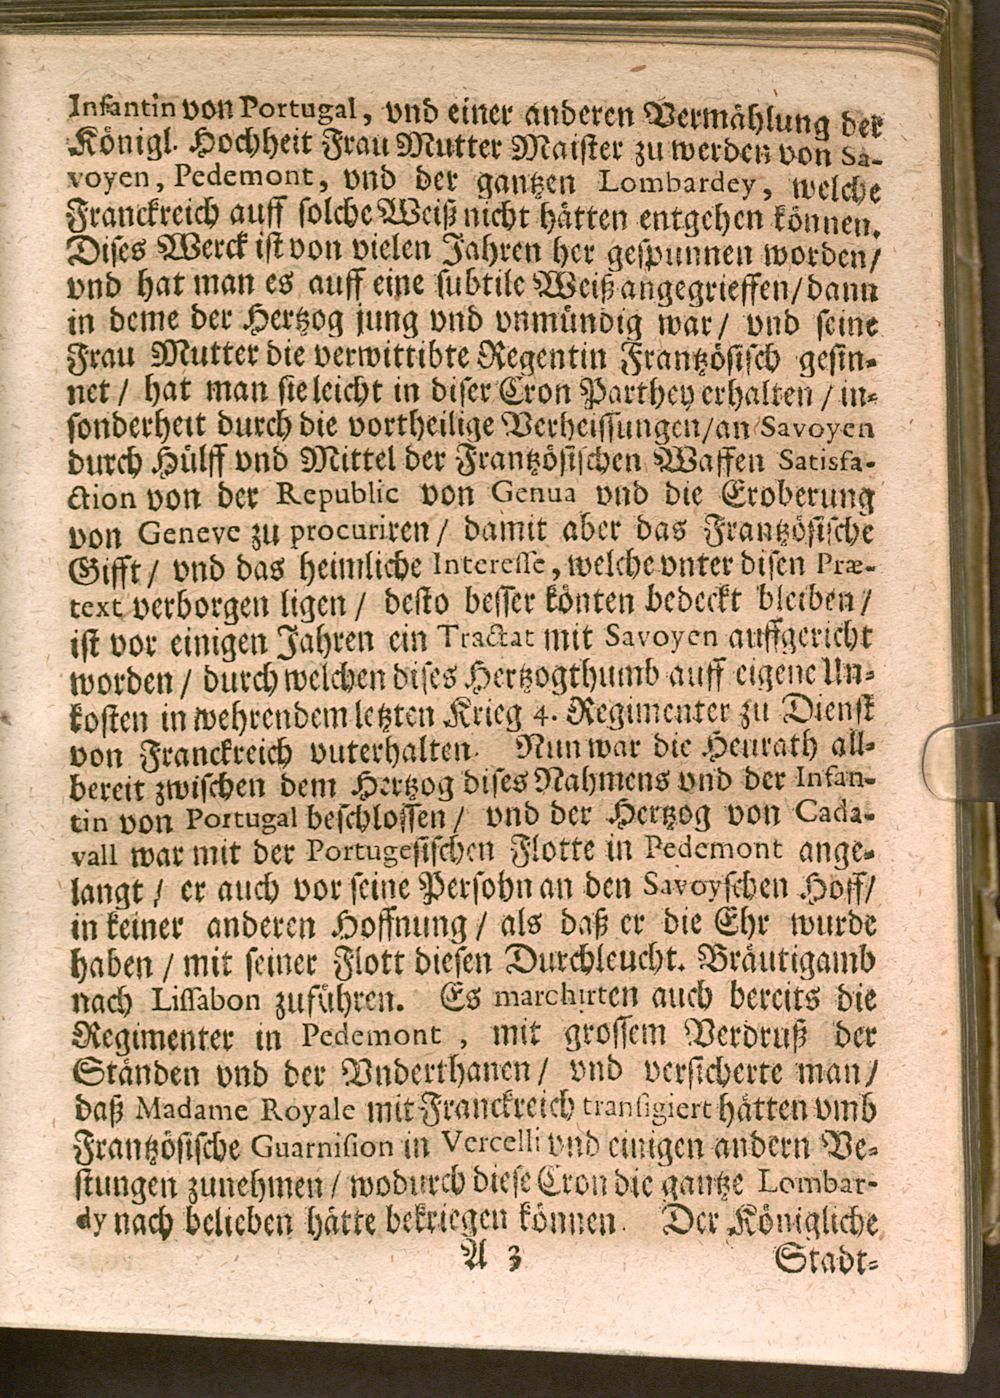 Infantin von Portugal, vnd einer anderen Vermählung der
Königl. Hochheit Frau Mutter Maister zu werden von Sa-
voyen, Pedemont, vnd der gantzen Lombardey, welche
Franckreich auff solche Weiß nicht hätten entgehen können.
Dises Werck ist von vielen Jahren her gespunnen worden/
vnd hat man es auff eine subtile Weiß angegrieffen/ dann
in deme der Hertzog jung vnd vnmündig war/ vnd seine
Frau Mutter die verwittibte Regentin Frantzösisch gesin-
net/ hat man sie leicht in diser Cron Parthey erhalten/ in-
sonderheit durch die vortheilige Verheissungen/ an Savoyen
durch Hülff vnd Mittel der Frantzösischen Waffen Satisfa-
ction von der Republic von Genua vnd die Eroberung
von Geneve zu procuriren/ damit aber das Frantzösische
Gifft/ vnd das heimliche Interesse, welche vnter disen Præ-
text verborgen ligen/ desto besser könten bedeckt bleiben/
ist vor einigen Jahren ein Tractat mit Savoyen auffgericht
worden/ durch welchen dises Hertzogthumb auff eigene Un-
kosten in wehrendem letzten Krieg 4. Regimenter zu Dienst
von Franckreich vuterhalten. Nun war die Heurath all-
bereit zwischen dem Hertzog dises Nahmens vnd der Infan-
tin von Portugal beschlossen/ vnd der Hertzog von Cada-
vall war mit der Portugesischen Flotte in Pedemont ange-
langt/ er auch vor seine Persohn an den Savoyschen Hoff/
in keiner anderen Hoffnung/ als daß er die Ehr wurde
haben/ mit seiner Flott diesen Durchleucht. Bräutigamb
nach Lissabon zuführen. Es marchirten auch bereits die
Regimenter in Pedemont, mit grossem Verdruß der
Ständen vnd der Vnderthanen/ vnd versicherte man/
daß Madame Royale mit Franckreich transigiert hätten vmb
Frantzösische Guarnision in Vercelli vnd einigen andern Ve-
stungen zunehmen/ wodurch diese Cron die gantze Lombar-
dy nach belieben hätte bekriegen können. Der Königliche
A 3 Stadt-